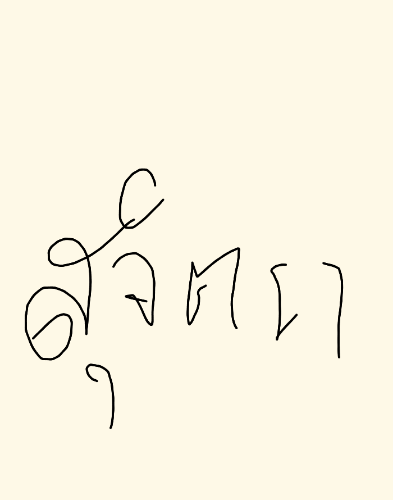 สุจิตรา